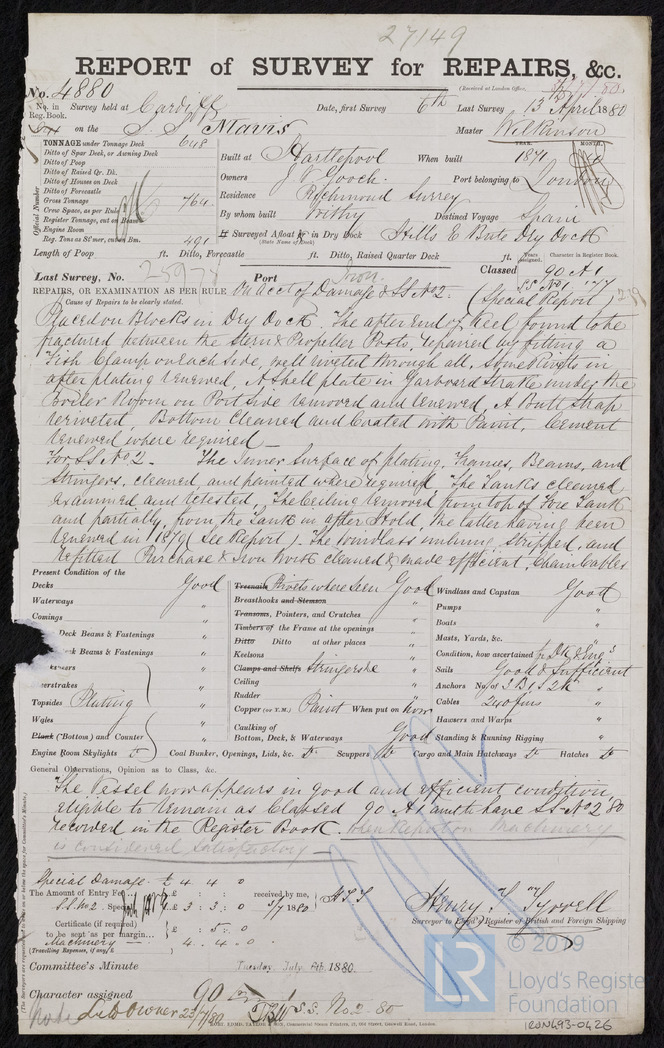 27149
REPORT of SURVEY for REPAIRS, &c.
(Received at London Office,
No. 4880
No. in Reg. Book. Survey held at Cardiff Date, first Survey 6th Last Survey 13 April 1880
on the S.S. Mavis Master Wilkinson
TONNAGE under Tonnage Deck 648
Ditto of Spar Deck, or Awning Deck
Ditto of Poop
Ditto of Raised Qr. Dk.
Ditto of Houses on Deck
Ditto of Forecastle
Gross Tonnage 764
Crew Space, as per Rule
Register Tonnage, cut on Beam
Engine Room
Reg. Tons as St'mer, cut on Bm. 491
Official Number
Built at Hartlepool When built YEAR. 1871 MONTH.
Owners J V Gooch Port belonging to London
Residence Richmond Surrey
By whom built Withy Destined Voyage Spain
If Surveyed Afloat or in Dry Dock Hills E Bute Dry Dock
(State Name of Dock)
Length of Poop ft. Ditto, Forecastle ft. Ditto, Raised Quarter Deck ft.
Years assigned. Character in Register Book.
Last Survey, No. 25978 Port Iron Classed 90 A1
SS No 1 '77
REPAIRS, OR EXAMINATION AS PER RULE On acct of Damage & SS No 2. (Special Report)
Cause of Repairs to be clearly stated.
Placed on Blocks in Dry Dock. The after End of Keel found to be
fractured between the Stern & Propeller Posts, repaired by fitting a
Fish Clamp on each side, well riveted through all. Some Rivets in
after plating renewed, A Shell plate in Garboard Strake under the
Boiler Room on Port side removed and renewed. A Butt Strap
reriveted, Bottom Cleaned and Coated with Paint. Cement
renewed where required
For SS No 2. The Inner Surface of plating, Frames, Beams, and
Stringers, cleaned, and painted where required. The Tanks cleaned,
examined and retested, The Ceiling removed from top of Fore Tank
and partially, from the Tank in after Hold, the latter having been
renewed in 1879 (See Report). The windlass unhung, stripped, and
refitted Purchase & Iron Work cleaned & made efficient, Chain Cables
Present Condition of the
Decks Good
Waterways "
Comings "
Deck Beams & Fastenings "
ck Beams & Fastenings "
"
erstrakes "
Topsides Plating "
Wales "
Plank ("Bottom) and Counter "
Engine Room Skylights Do Coal Bunker, Openings, Lids, &c. Do Scuppers Do Cargo and Main Hatchways Do Hatches Do
Treenails Rivets where seen Good
Breasthooks and Stemson "
Transoms, Pointers, and Crutches "
Timbers of the Frame at the openings "
Ditto Ditto at other places "
Keelsons "
Clamps and Shelfs Stringers &c "
Ceiling "
Rudder "
Copper (or Y.M.) Paint When put on now
Caulking of
Bottom, Deck, & Waterways Good
Windlass and Capstan Good
Pumps "
Boats "
Masts, Yards, &c. "
Condition, how ascertained
Sails Good & Sufficient
Anchors No. of 3 B 1 S 2 K "
Cables 240 fms "
Hawsers and Warps "
Standing & Running Rigging "
General Observations, Opinion as to Class, &c.
The Vessel now appears in good and efficient condition,
eligible to remain as Classed 90 A1 and to have SS No 2 '80
recorded in the Register Book. When Report on Machinery
is considered satisfactory
Special Damage £ 4 4 0
The Amount of Entry Fee £ : : received by me,
S.S. No 2. Special £ 3 : 3 : 0 3/7 1880 H S T
Certificate (if required) £ : 5 : 0
to be sent as per margin...
Machinery 4 . 4 . 0
(Travelling Expenses, if any, £ )
Henry S Tyrrell
Surveyor to Lloyd's Register of British and Foreign Shipping
Committee's Minute Tuesday, July 6th, 1880.
Character assigned 90 A 1 S.S. No 2. 80
Owner 23/7/80
© 2019
LR Lloyd's Register
Foundation
IRON493-0426